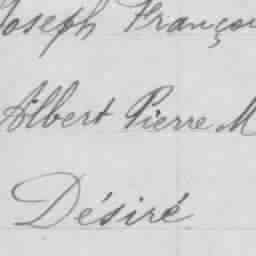 Joseph Françoi
Albert Pierre M
Désiré